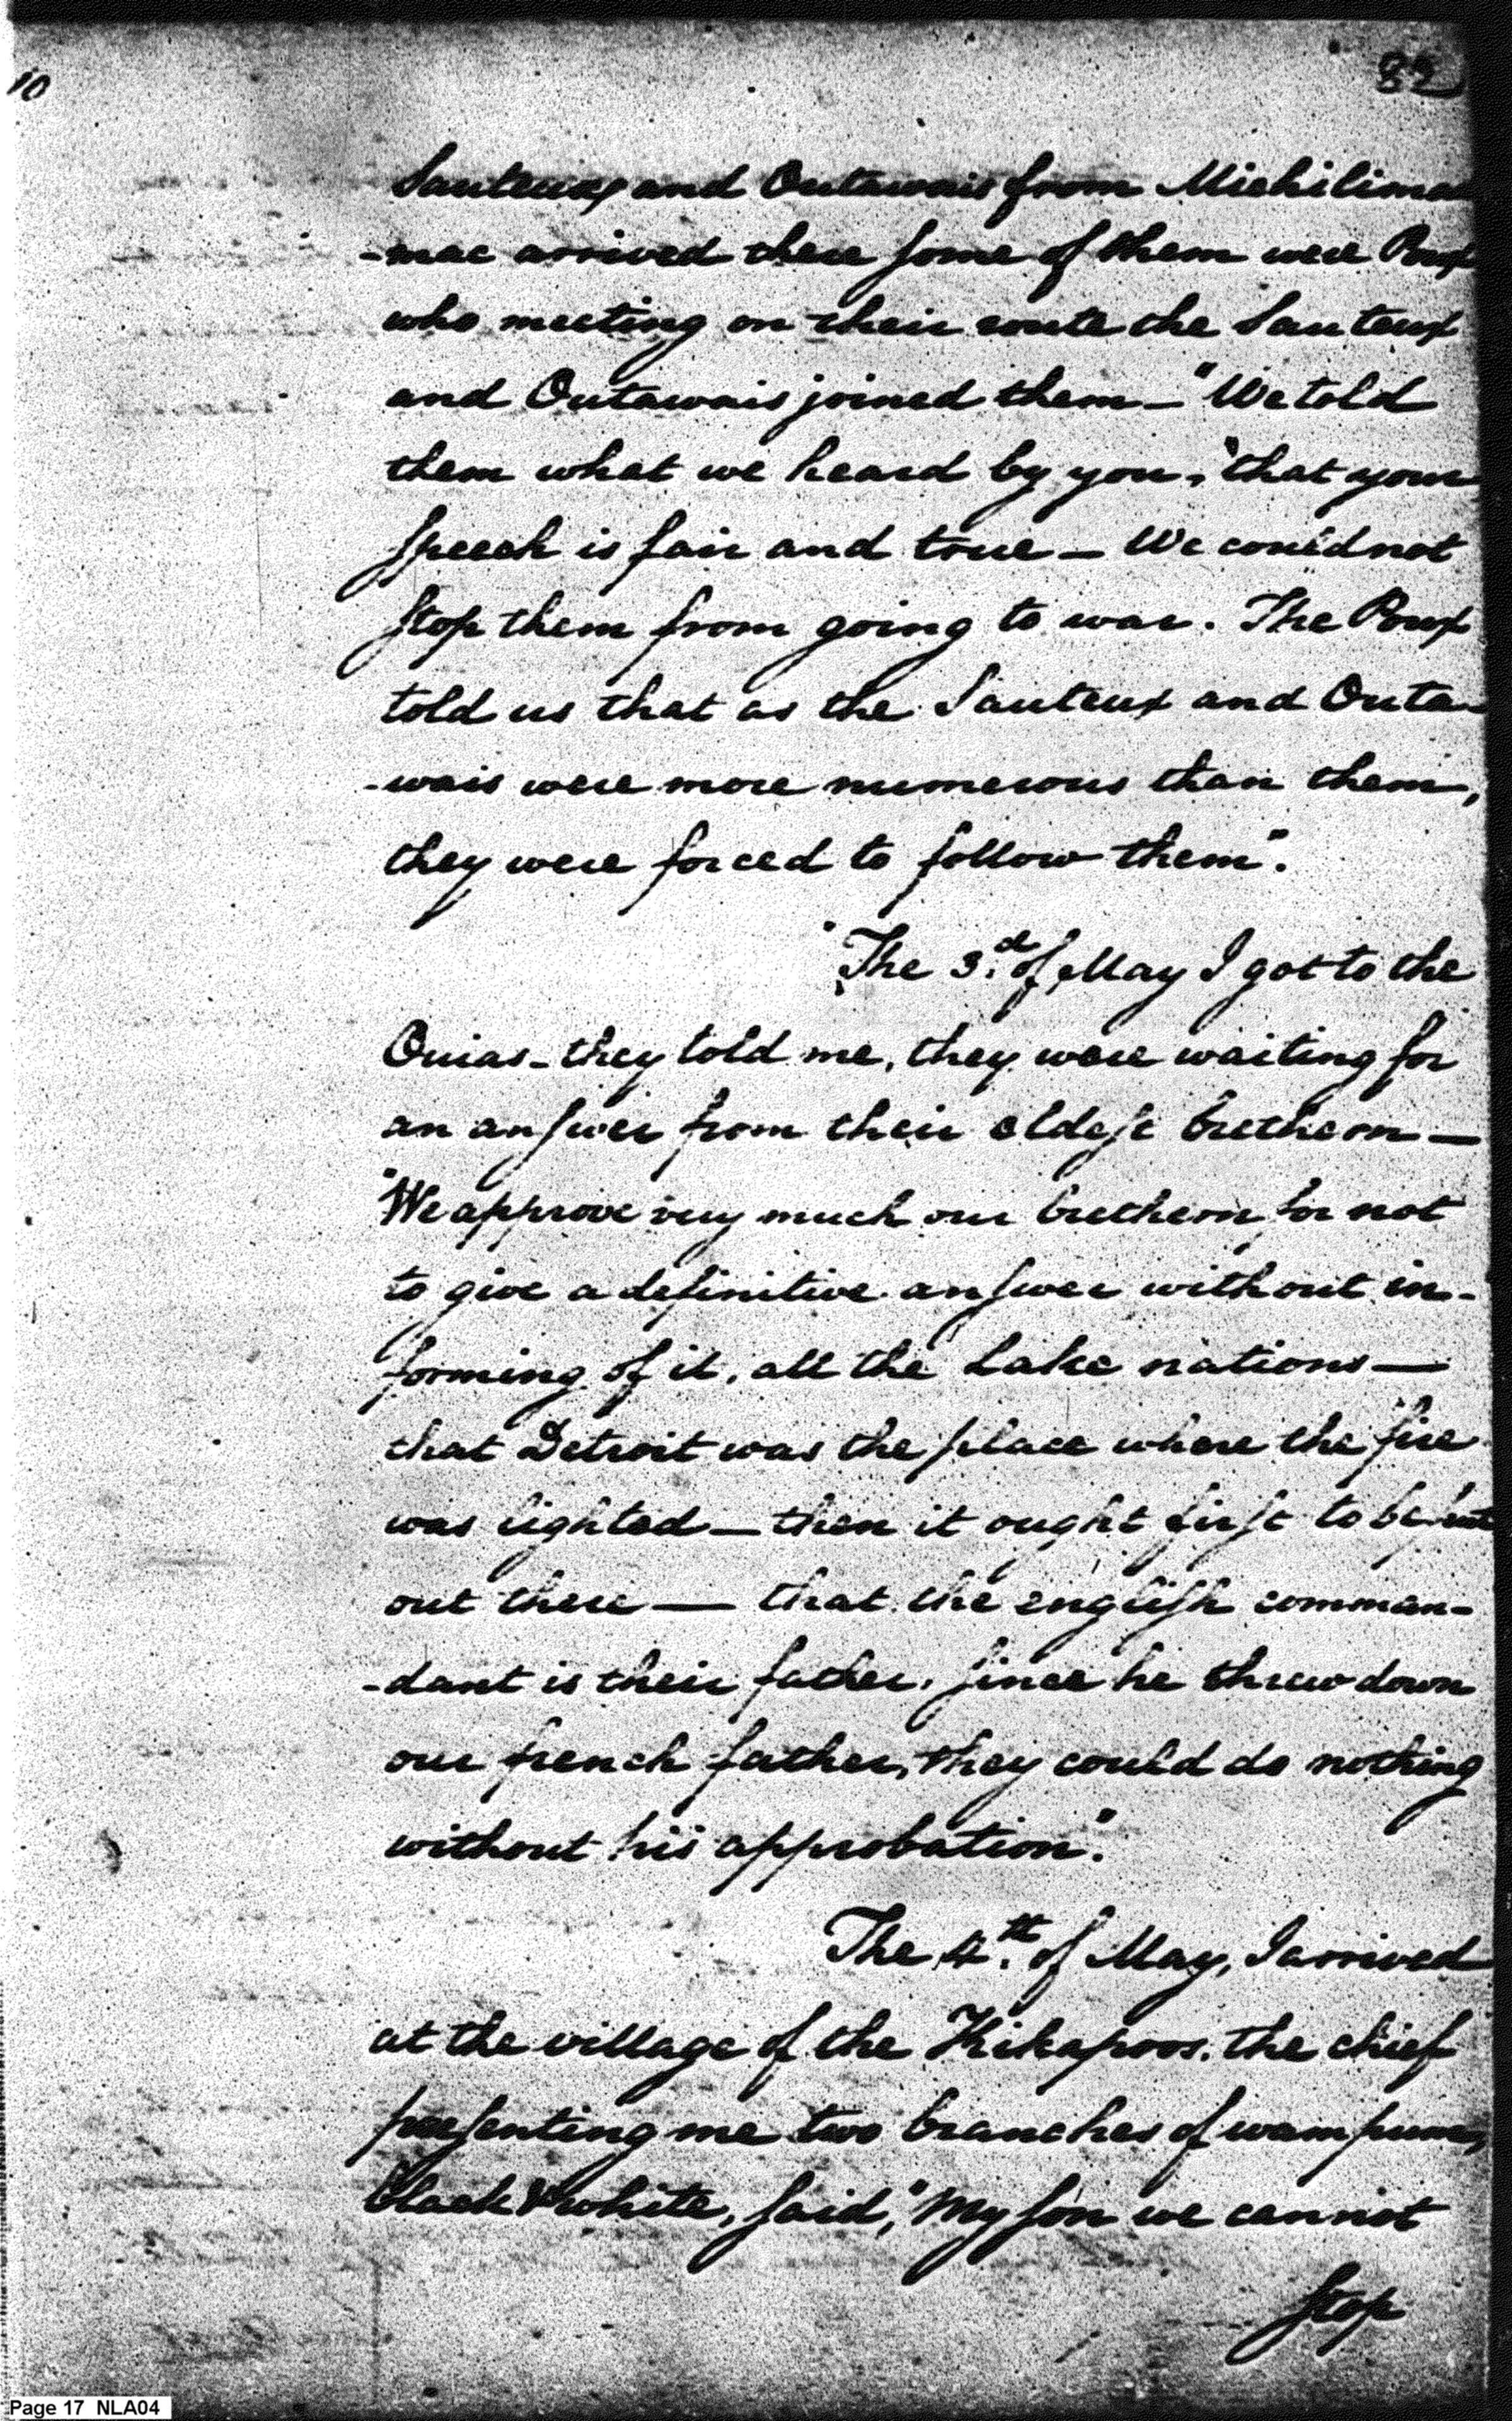 10
82
Sauteux and Outawais from Michilima
-mac arrived there some of them were Poux
who meeting on their route the Sauteux
and Outawais joined them— "We told
them what we heard by you, "that your
speech is fair and true— We could not
stop them from going to war. The Poux
told us that as the Sauteux and Outa-
-wais were more numerous than them,
they were forced to follow them".
"The 3.d of May I got to the
Ouias - they told me, they were waiting for
an answer from their eldest brethern—
"We approve very much our brethern for not
to give a definitive answer without in-
forming of it, all the Lake nations—
that Detroit was the place where the fire
was lighted— then it ought first to be put
out there— that the english comman-
-dant is their father, since he threw down
our french father, they could do nothing
without his approbation".
The 4.th of May, I arrived
at the village of the Kikapoos. the chief
presenting me two branches of wampum,
black & white, said, "My son we cannot
stop
Page 17 NLA04